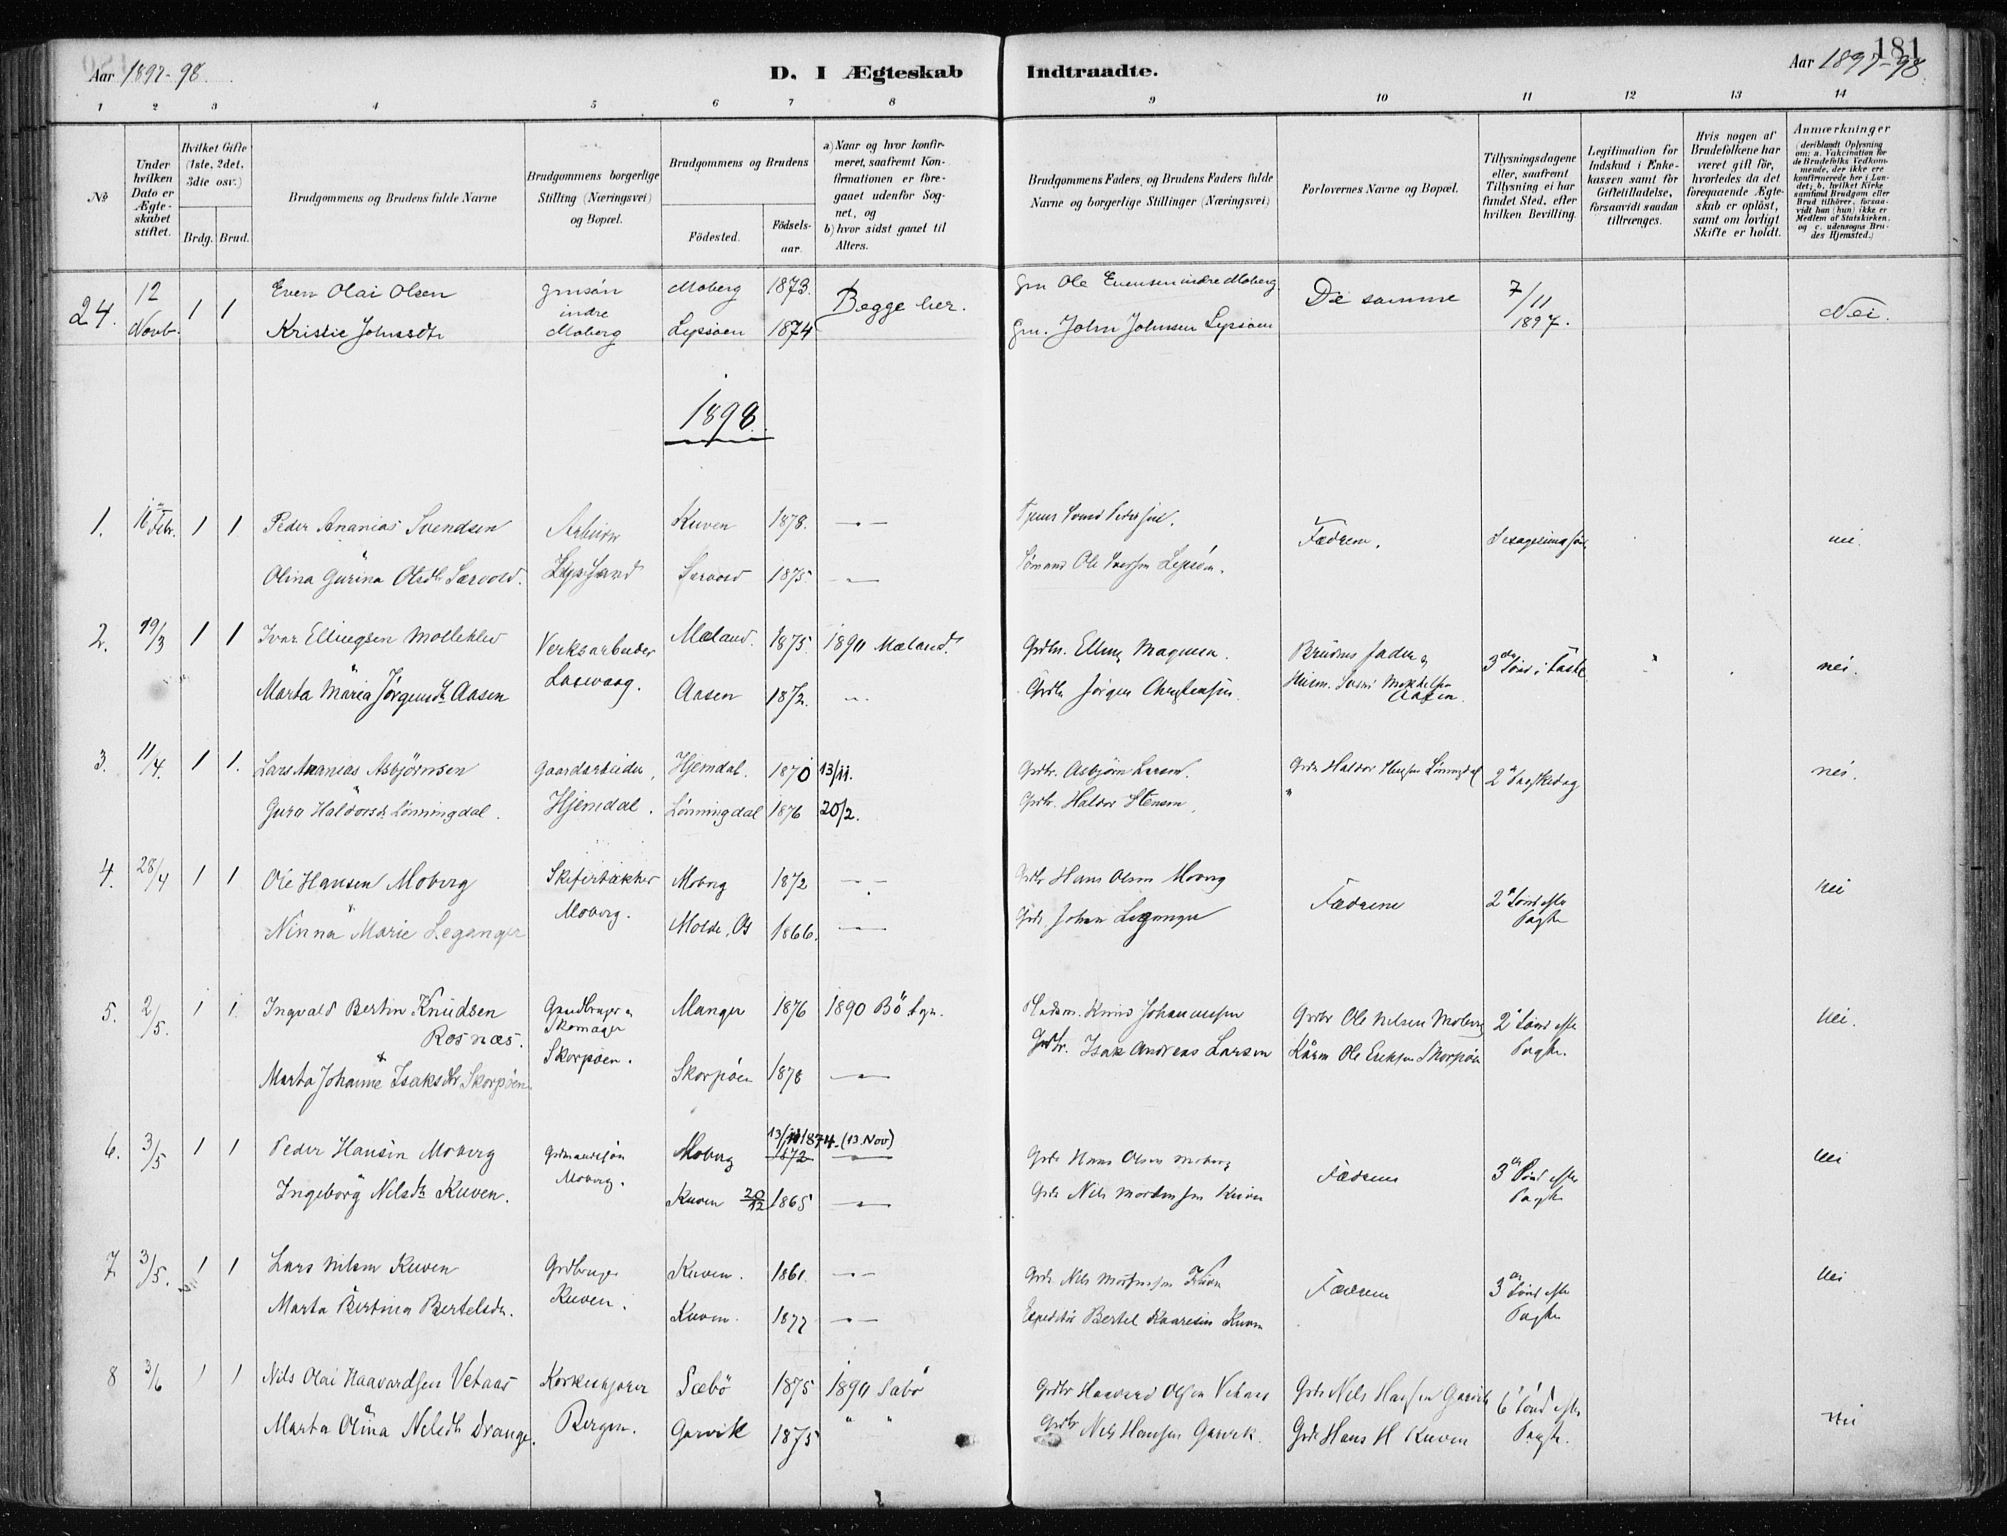 Aar 1897-98.
D. I Ægteskab Indtraadte.
Aar 1897-98.
181
1 2 3 4 5 6 7 8 9 10 11 12 13 14
No
Under hvilken Dato er Ægteskabet stiftet.
Hvilket Gifte (1ste, 2det, 3die osv.)
Brdg. Brud.
Brudgommens og Brudens fulde Navne
Brudgommens borgerlige Stilling (Næringsvei) og Bopæl.
Brudgommens og Brudens
Fødested.
Fødsels-aar.
a) Naar og hvor konfirmeret, saafremt Konfirmationen er foregaaet udenfor Sognet, og
b) hvor sidst gaaet til Alters.
Brudgommens Faders og Brudens Faders fulde Navne og borgerlige Stillinger (Næringsvei)
Forlovernes Navne og Bopæl.
Tillysningsdagene eller, saafremt Tillysning ei har fundet Sted, efter hvilken Bevilling.
Legitimation for Indskud i Enkekassen samt for Giftetilladelse, forsaavidt saadan tiltrænges.
Hvis nogen af Brudefolkene har været gift før, hvorledes da det foregaaende Ægteskab er opløst, samt om lovligt Skifte er holdt.
Anmærkninger
(deriblandt Oplysning om: a. Vakcination for de Brudefolks Vedkommende, der ikke ere konfirmerede her i Landet; b. hvilket Kirkesamfund Brudgom eller Brud tilhører, forsaavidt han (hun) ikke er Medlem af Statskirken, og c. udensogns Brudes Hjemsted.)
24. 12 Novb. 1 1 Even Olai Olsen gmsøn indre Moberg Moberg 1873. Begge her. Gm Ole Evensen indre Moberg. De samme 7/11 1897. Nei.
Kristie Johnsdtr Lepsøen 1874 Gm. John Johnsen Lepsøen
1898.
1. Febr. 1 1 Peder Ananias Svendsen Kuven 1878. Fædrene. nei.
Olina Gurina Olsdtr Særvold. Særvold 1875 Ole Lepsøen.
2. 19/3 1 1 Ivar Ellingsen Verksarbeider Mæland. 1875 1890 Mæland. Grdbr. Elling Magnesen. Brudens fader og 3die Sønd. i Faste nei.
Marta Maria Jørgensdr. Aasen Aasen 1872. Grdbr Jørgen Christensen. Aasen.
3. 11/4. 1 1. Lars Ananias Asbjørnsen Gaardarbeider. Hjemdal. 1870 13/11. Grdbr. Asbjørn Larsen. Grdbr Haldor Lønningdal 2 Paaskedag nei.
Guro Haldorsdr Lønningdal. Hjemdal. Lønningdal 1876 20/2. Grdbr. Haldor Stensen. "
4. 28/4 1 1 Ole Hansen Moberg Moberg. Moberg 1872 Grdbr Hans Olsen Moberg Fædrene 2 Sønd efter Paaske nei
Ninna Marie Leganger Molde, Os 1866. Grdbr. Johan Leganger
5. 2/5. 1 1. Ingvald Bertin Knudsen Rosnæs. Gaardbruger og Skomager Skorpøen. Manger 1876 1890 Bø Sogn. Knud Johannessen Grdbr Ole Nilsen Moberg 2 Sønd efter Paaske. Nei.
Marta Johanne Isaksdtr Skorpøen Skorpøen 1878 Grdbr. Isak Andreas Larsen Ole Eriksen Skorpøen
6. 3/5 1 1 Peder Hansen Moberg Moberg. Moberg 1872 13/11 1874. (13. Nov) Grdbr Hans Olsen Moberg Fædrene 3 Sønd efter Paaske Nei
Ingeborg Nilsdtr Kuven. Kuven 20/12 1865 Grdbr Nils Mortensen Kuven
7 3/5. 1 1 Lars Nilsen Kuven Grdbruger Kuven. Kuven. 1861. Grdbr Nils Mortensen Kuven Fædrene 3 Sønd efter Paaske Nei
Marta Bertina Bertelsdr. Kuven. 1877 Expeditør Bertel Kuven
8 3/6 1 1 Nils Olai Haavardsen Vetaas Bergen. Sæbø 1875 1890 Sæbø Grdbr Haavard Olsen Vetaas Grdbr Nils Hansen Garvik 6 Sønd efter Paaske. nei
Marta Olina Nilsdtr Drange. Garvik 1875 " " Grdbr Nils Hansen Garvik. Grdbr Hans H Kuven